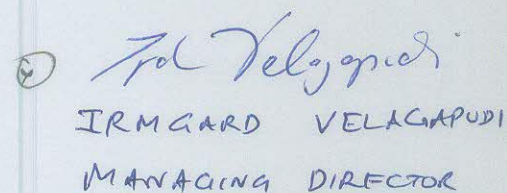 Irmgard Velagapudi
IRMGARD VELAGAPUDI
MANAGING DIRECTOR